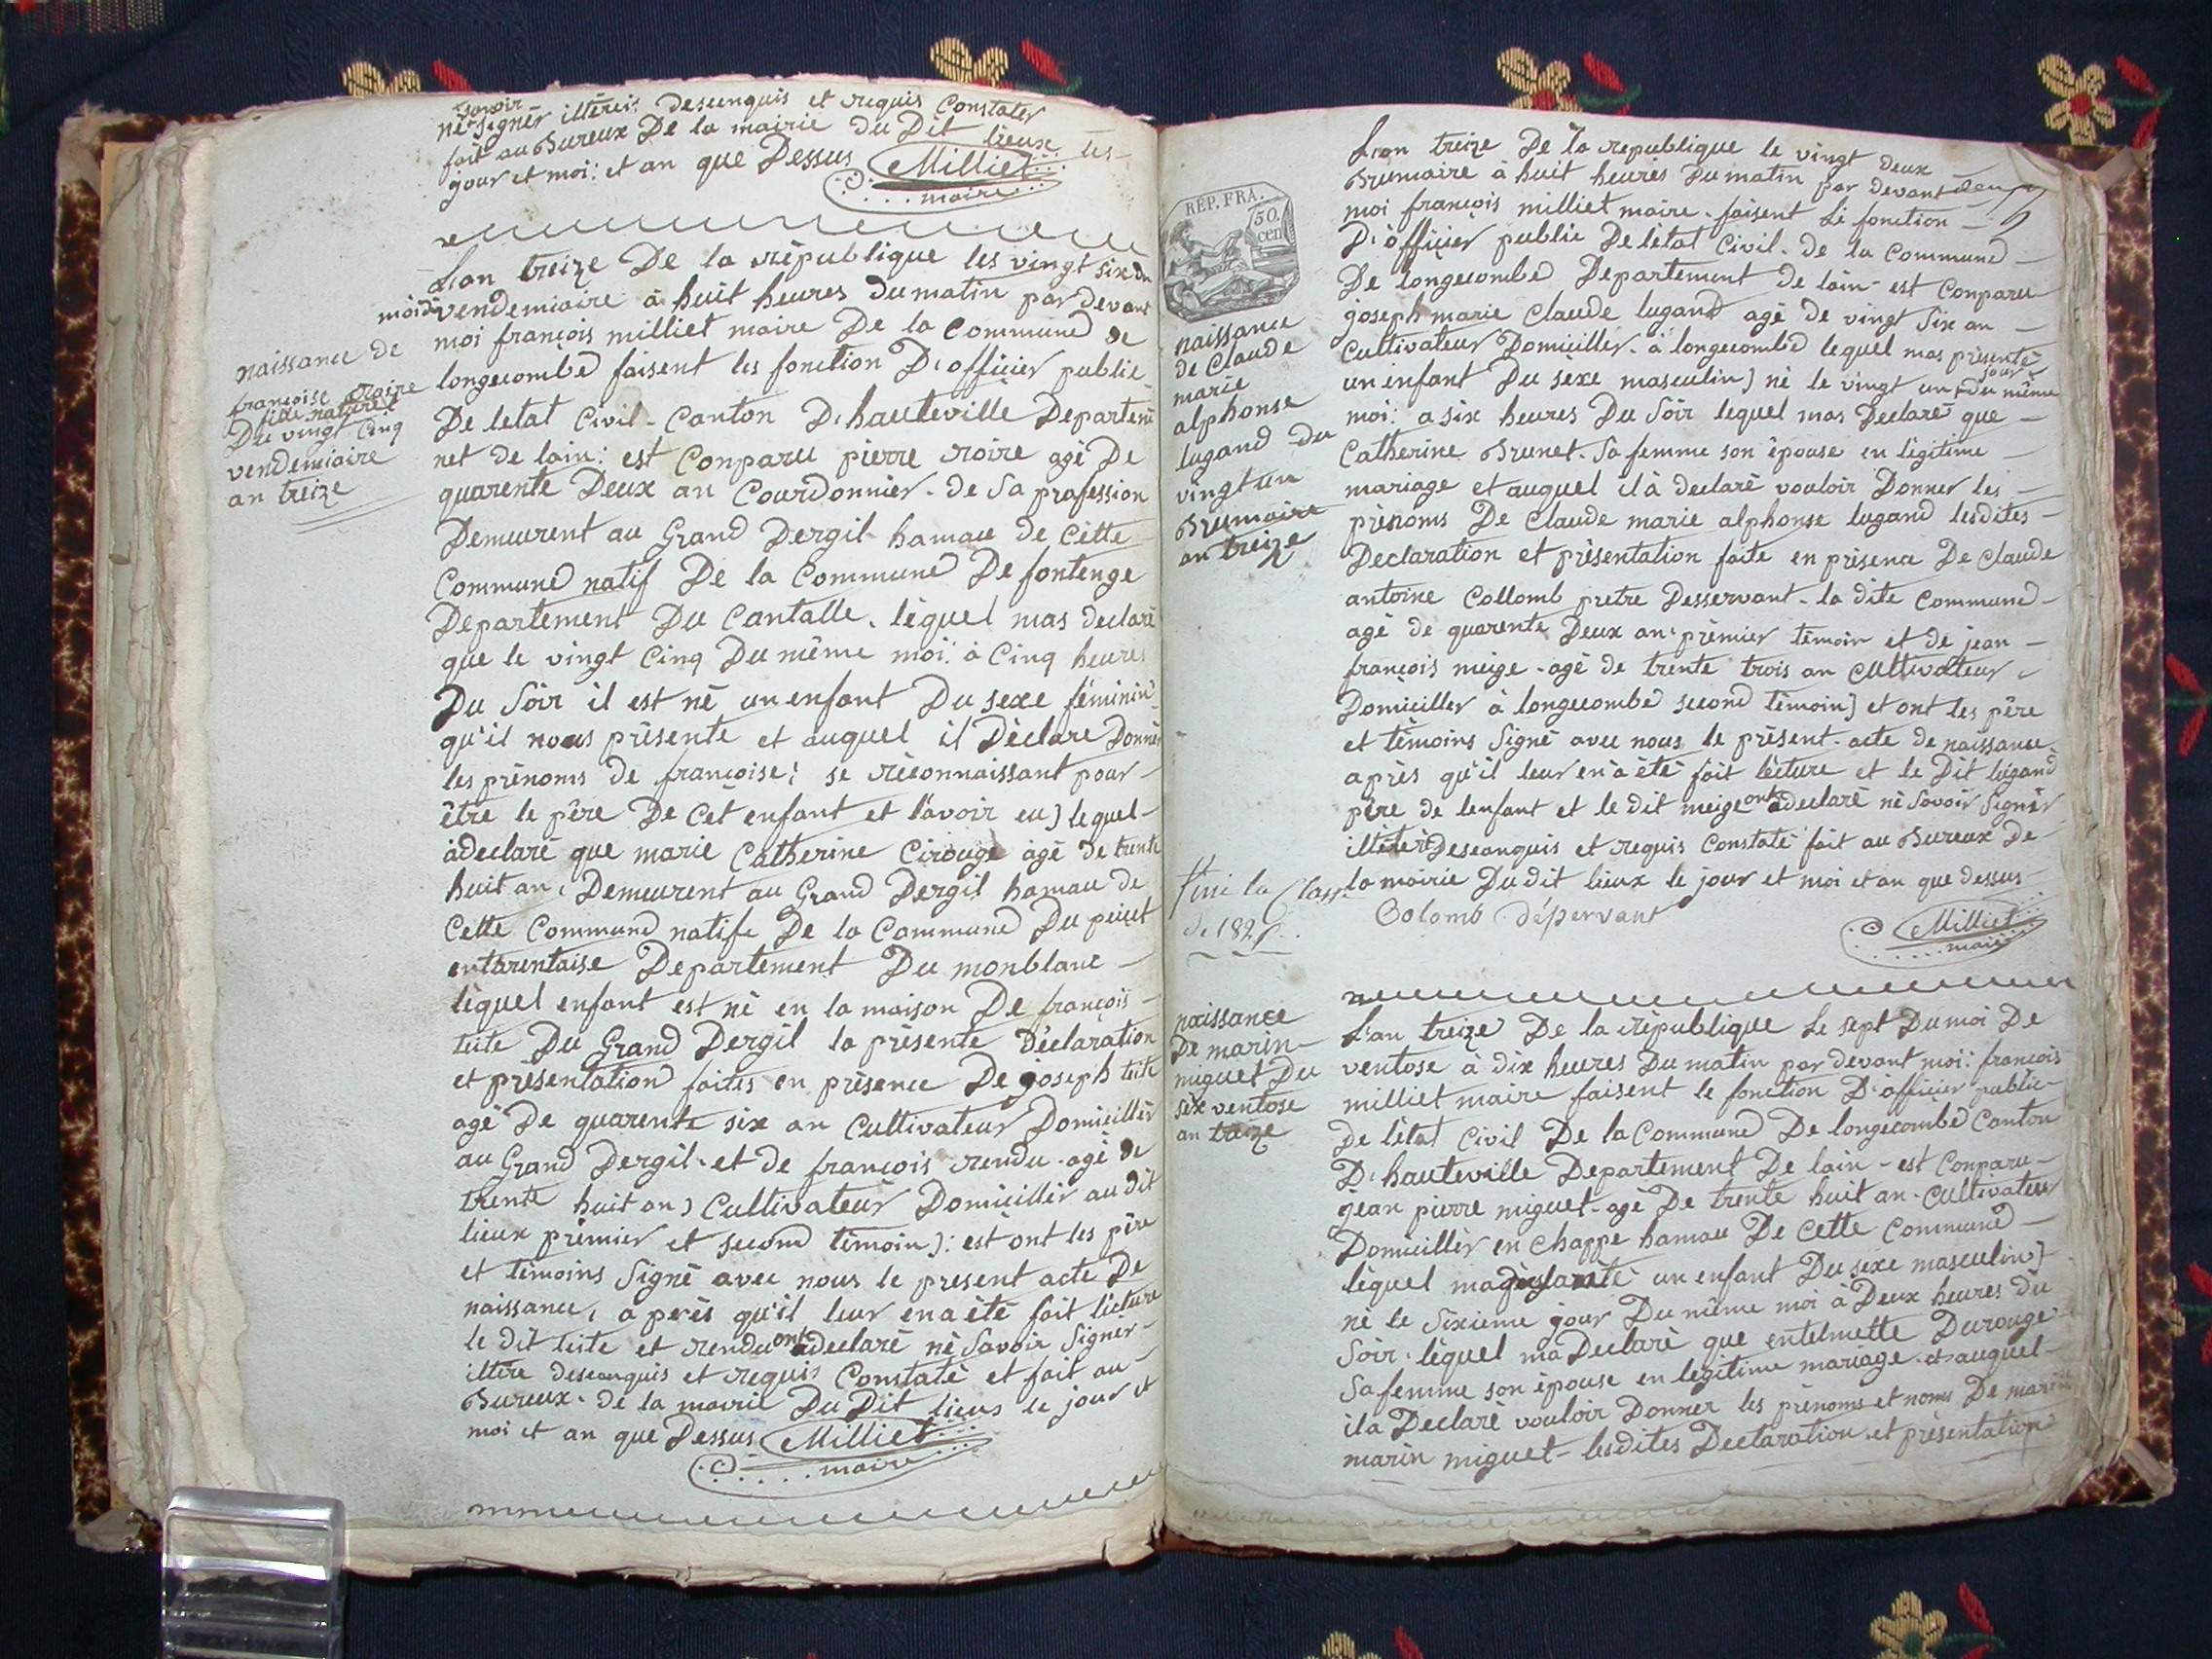 savoir
nè signér illéreis descenquis et requis Constater
fait au Bureux De la mairie du Dit lieux les
jour et moi: et an que Dessus Milliet
maire
L'an treize De la rèpublique les vingt six du
moi de vendemiaire à huit heures du matin par devant
moi françois milliet maire De la Commune de
longecombe faisent les fonction D'officier public
De letat Civil - Canton D'hauteville Departem
net de lain: est Conparu pierre roire agé De
quarente Deux an Courdonnier - de Sa profession
Demeurent au Grand Dergil hamau de Cette
Commune natif De la Commune De fontenge
Departement Du Cantalle, léquel mas declaré
que le vingt Cinq Du même moi: à Cinq heures
Du Soir il est né un enfant Du sexe féminin
qu'il nous présente et auquel il Dèclare Donnér
les prénoms de françoise; se réconnaissant pour
être le père De Cet enfant et l'avoir eu) lequel
à declaré que marie Catherine Cirouge àgé de trente
huit an, Demeurent au Grand Dergil hamau de
Cette Commune natife De la Commune Du
entarentaise Departement Du monblanc
léquel enfant est né en la maison De françois
tete Du Grand Dergil la présente Déclaration
et présentation faites en présence De joseph tete
agé De quarente six an Cultivateur Domicillér
au Grand Dergil - et de françois rendu - agé de
trente huit an) Cultivateur Domicillér au dit
lieux prémier et second témoin): est ont les père
et témoins Signé avec nous le present acte De
naissance, aperès qu'il leur en a été fait lécture
le dit tete et rendu ont declaré né Savoir Signér
illére descanquis et requis Constaté et fait au
Bureux - de la mairie Du Dit lieus le jour et
moi et an que Dessus Milliet
maire
naissance de
françoise roire
fille naturel
Du vingt Cinq
vendemiaire
an treize
L'an treize De la republique le vingt deux
Brumaire à huit heures Du matin par devant
moi françois milliet maire - faisent Le fonction
D'officier public De létat Civil - de la Commune
De longecombe Departement De lain - est Conparu
joseph marie Claude lugand agé de vingt Six an
Cultivateur Domicillér - à longecombe lequel mas présenté
un enfant Du sexe masculin) né le vingt un jour du même
moi: a six heures Du Soir lequel mas Declaré que
Catherine Brunet - Sa femme son épouse en légitime
mariage et auquel il à declaré vouloir Donner les
prénoms De Claude marie alphonse lugand lesdites
Declaration et présentation faite en présence De Claude
antoine Collomb pretre Desservant - la dite Commune
agé de quarente Deux an prémier témoin et de jean
françois meige - agé de trente trois an Cultivateur
Domicillér à longecombe second témoin) et ont les père
et témoins Signé avec nous le présent - acte de naissance
après qu'il leur en à été fait lécture et le Dit lugand
père de lenfant et le dit meige ont declaré né Savoir Signér
illétér Descanquis et requis Constaté fait au Bureux De
la mairie Du dit lieux le jour et moi et an que dessus
Colomb déservant
Milliet
maire
L'an treize De la rèpublique Le sept Du moi De
ventose à dix heures Du matin par devant moi: françois
milliet maire faisent le fonction D'officier public
De l'état Civil De la Commune De longecombe Canton
D'hauteville Departement De lain - est Conparu
jean pierre miguet - agé De trente huit an - Cultivateur
Domicillér en Chappe hamau De Cette Commune
léquel ma présanté un enfant Du sexe masculin)
né le Sixieme jour Du même moi à Deux heures du
Soir - léquel ma Declaré que entelmette Durouge
Sa femme son épouse en légitime mariage - et auquel
il a Declaré vouloir Donner les prénoms et noms De
marin miguet - lesdites Declaration et présentation
RÉP. FRA.
50.
cen
naissance
de Claude
marie
alphonse
lugand du
vingt un
Brumaire
an treize
fini la Classe
naissance
De marin
miguet Du
six ventose
an treize